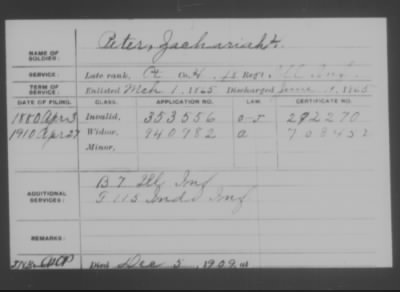 NAME OF SOLDIER: Peter, Zachariah
SERVICE: Late rank, Pt Co. H, Regt. Ill Inf.
TERM OF SERVICE: Enlisted Mch 1, 1865 Discharged June, 1865
DATE OF FILING. CLASS. APPLICATION NO. LAW. CERTIFICATE NO.
1880 Apr 3 Invalid, 353556 292270
1910 Apr 27 Widow, 940982 a
Minor,
ADDITIONAL SERVICES: B 7 Ills Inf
F 115 Inda Inf
REMARKS:
Died Dec 5, 1909, at